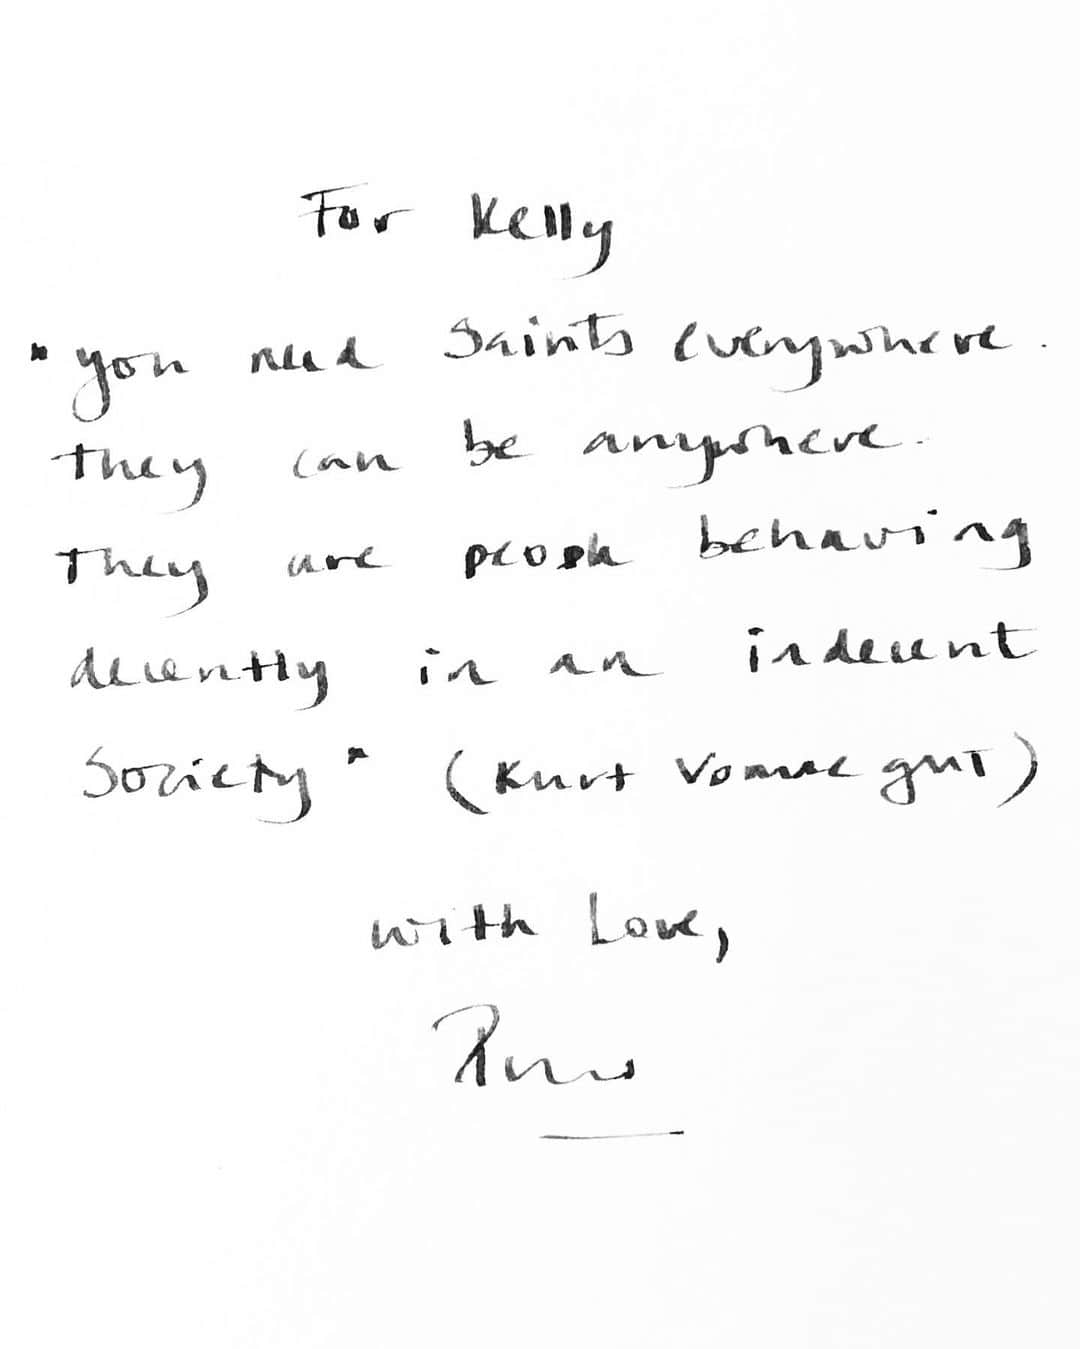 For Kelly
"you need Saints everywhere.
they can be anywhere.
They are people behaving
decently in an indecent
Society" (Kurt Vonnegut)
with Love,